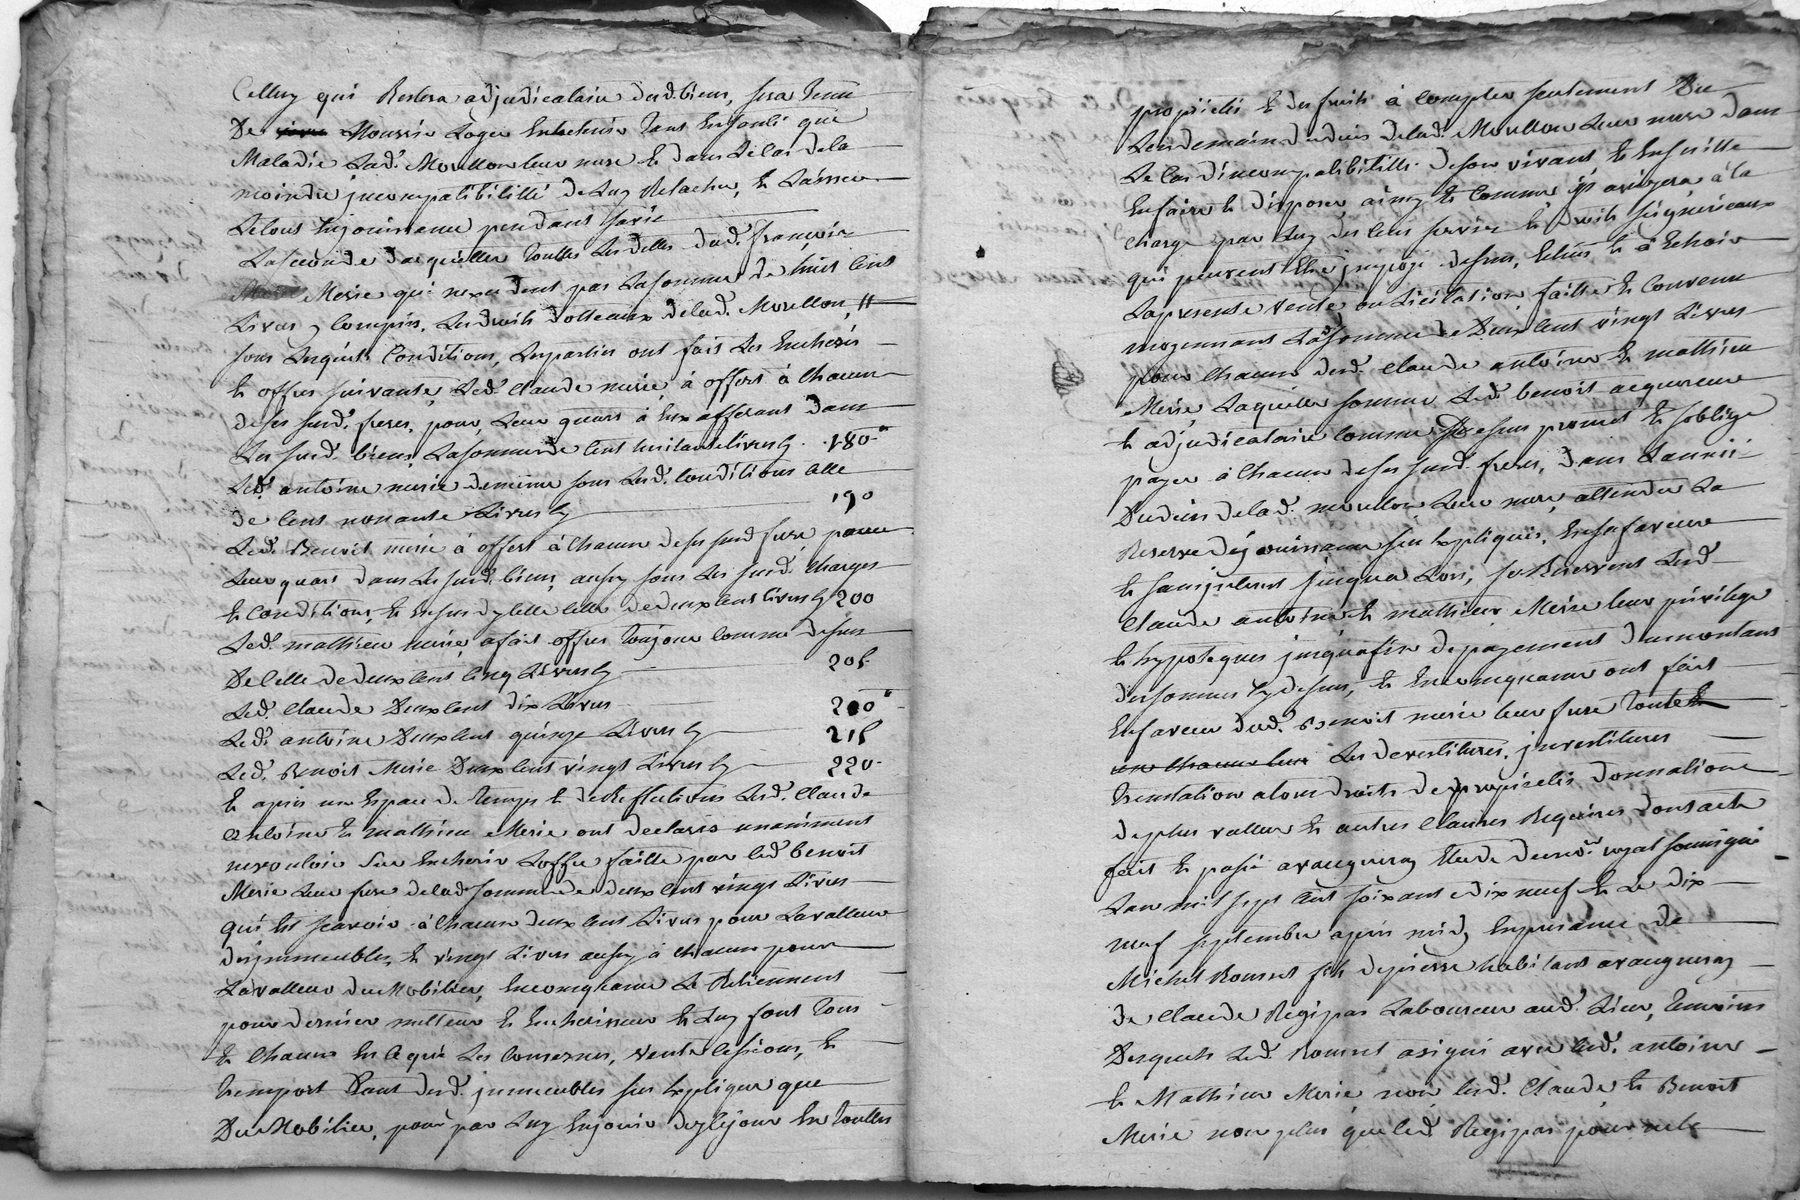 Celluy qui Restera adjudicataire desd. biens, sera tenu
De vivre Nourrir Loger Entretenir tant En santé que
Maladie Lad. Morellon leur mere Et dans Le cas de la
moindre jncompatibilitté de luy Relacher, Et Laisser
Le tout En jouissance pendant sa vie
La seconde d'acquitter touttes Les dettes dud. françois
Merie qui n'excedent pas La somme de huit Cent
Livres y Compris Les droits dotteaux de lad. Morellon, //
sous Lesquels Conditions, Les parties ont fait Les Encheres
Et offres suivantes, Led. Claude merie, à offert à Chacun
de ses susd. freres, pour Leur quart à Eux afferant dans
Les susd. biens, La somme de Cent huitante livres Cy 180
Led. antoine merie de meme sous Lesd. Conditions Celle
de Cent nonante Livres Cy 190
Led. Benoit merie à offert à Chacun de ses susd freres, pour
Leur quart dans Les susd. biens, aussy sous Les susd. Charges
Et Conditions, Et en sus d'ycelle Celle de deux Cent livres Cy 200
Led. mathieu merie, a fait offres toujour Comme dessus
De Celle de deux Cent Cinq Livres Cy 205
Led. Claude Deux Cent dix Livres 210
Led. antoine Deux Cent quinze Livres Cy 215
Led. Benoit Merie Deux Cent vingt Livres Cy 220
Et après un Espace de temps Et de Reflections Lesd. Claude
Antoine Et mathieu Merie ont declarés unaniment
ne vouloir sur Encherir L'offre faitte par led benoit
Merie Leur frere de lad somme de deux Cent vingt Livres
qui Est scavoir à Chacun deux Cent Livres pour La valleur
des jmmeubles, Et vingt Livres aussy à Chacun pour
La valleur du Mobilier, En Consequence Le Retiennent
pour dernier metteur Et Encherisseur Et Luy font tous
Et Chacun En Ce qui Les Concernes, vente Cession, Et
transport Tant desd. jmmeubles sus Expliqués que
Du Mobilier, pour par Luy En jouir dez Ce jour En toutte
proprietés Et des fruits à Compter seulement Du
Lendemain du deces de lad. Morellon Leur mere dans
Le Cas d'incompatibilitté de son vivant Et Ensuitte
En faire Et disposer ainsy Et Comme jl avisera, à la
charge par Luy des Cens servis Et droits seigneuriaux
qui peuvent Etre jmposé dessus, Echus Et à Echoir
La presente vente ou Licitation faitte Et Convenu
moyennant La somme de Deux Cent vingt Livres
pour Chacun desd. Claude antoine Et mathieu
Merie, Laquelle somme Led. benoit acquereur
Et adjudicataire Comme dessus promet Et s'oblige
payer à Chacun de ses susd. freres, dans L'année
Du deces de lad. morellon Leur mere, attendu La
Reserve de jouissance sus Expliquée, En sa faveur
Et seulement jusqu'a Lors, se Reservent Lesd
Claude antoine Et mathieu Merie leur privilege
Et hypoteques jusqu'a fin de payement du montant
des sommes Cy dessus, Et En Consequence ont fait
En faveur dud. Benoit merie leur frere toutte
Les devestitures, jnvestitures
translation a tous droits de proprietés donnation
de plus valleur Et autres Clauses Requises dont acte
fait Et passé a vaugneray Etude du no.re royal soussigné
L'an mil sept Cent soixante dix neuf Et Le dix
neuf septembre apres midy En presence de
Michel fils de pierre habitant a vaugneray
de Claude Regipas Laboureur aud. Lieu, temoins
Desquels Led. a signé avec Led. antoine
Et Mathieu Merie non Lesd. Claude, Et Benoit
Merie non plus que led Regipas pour ne le